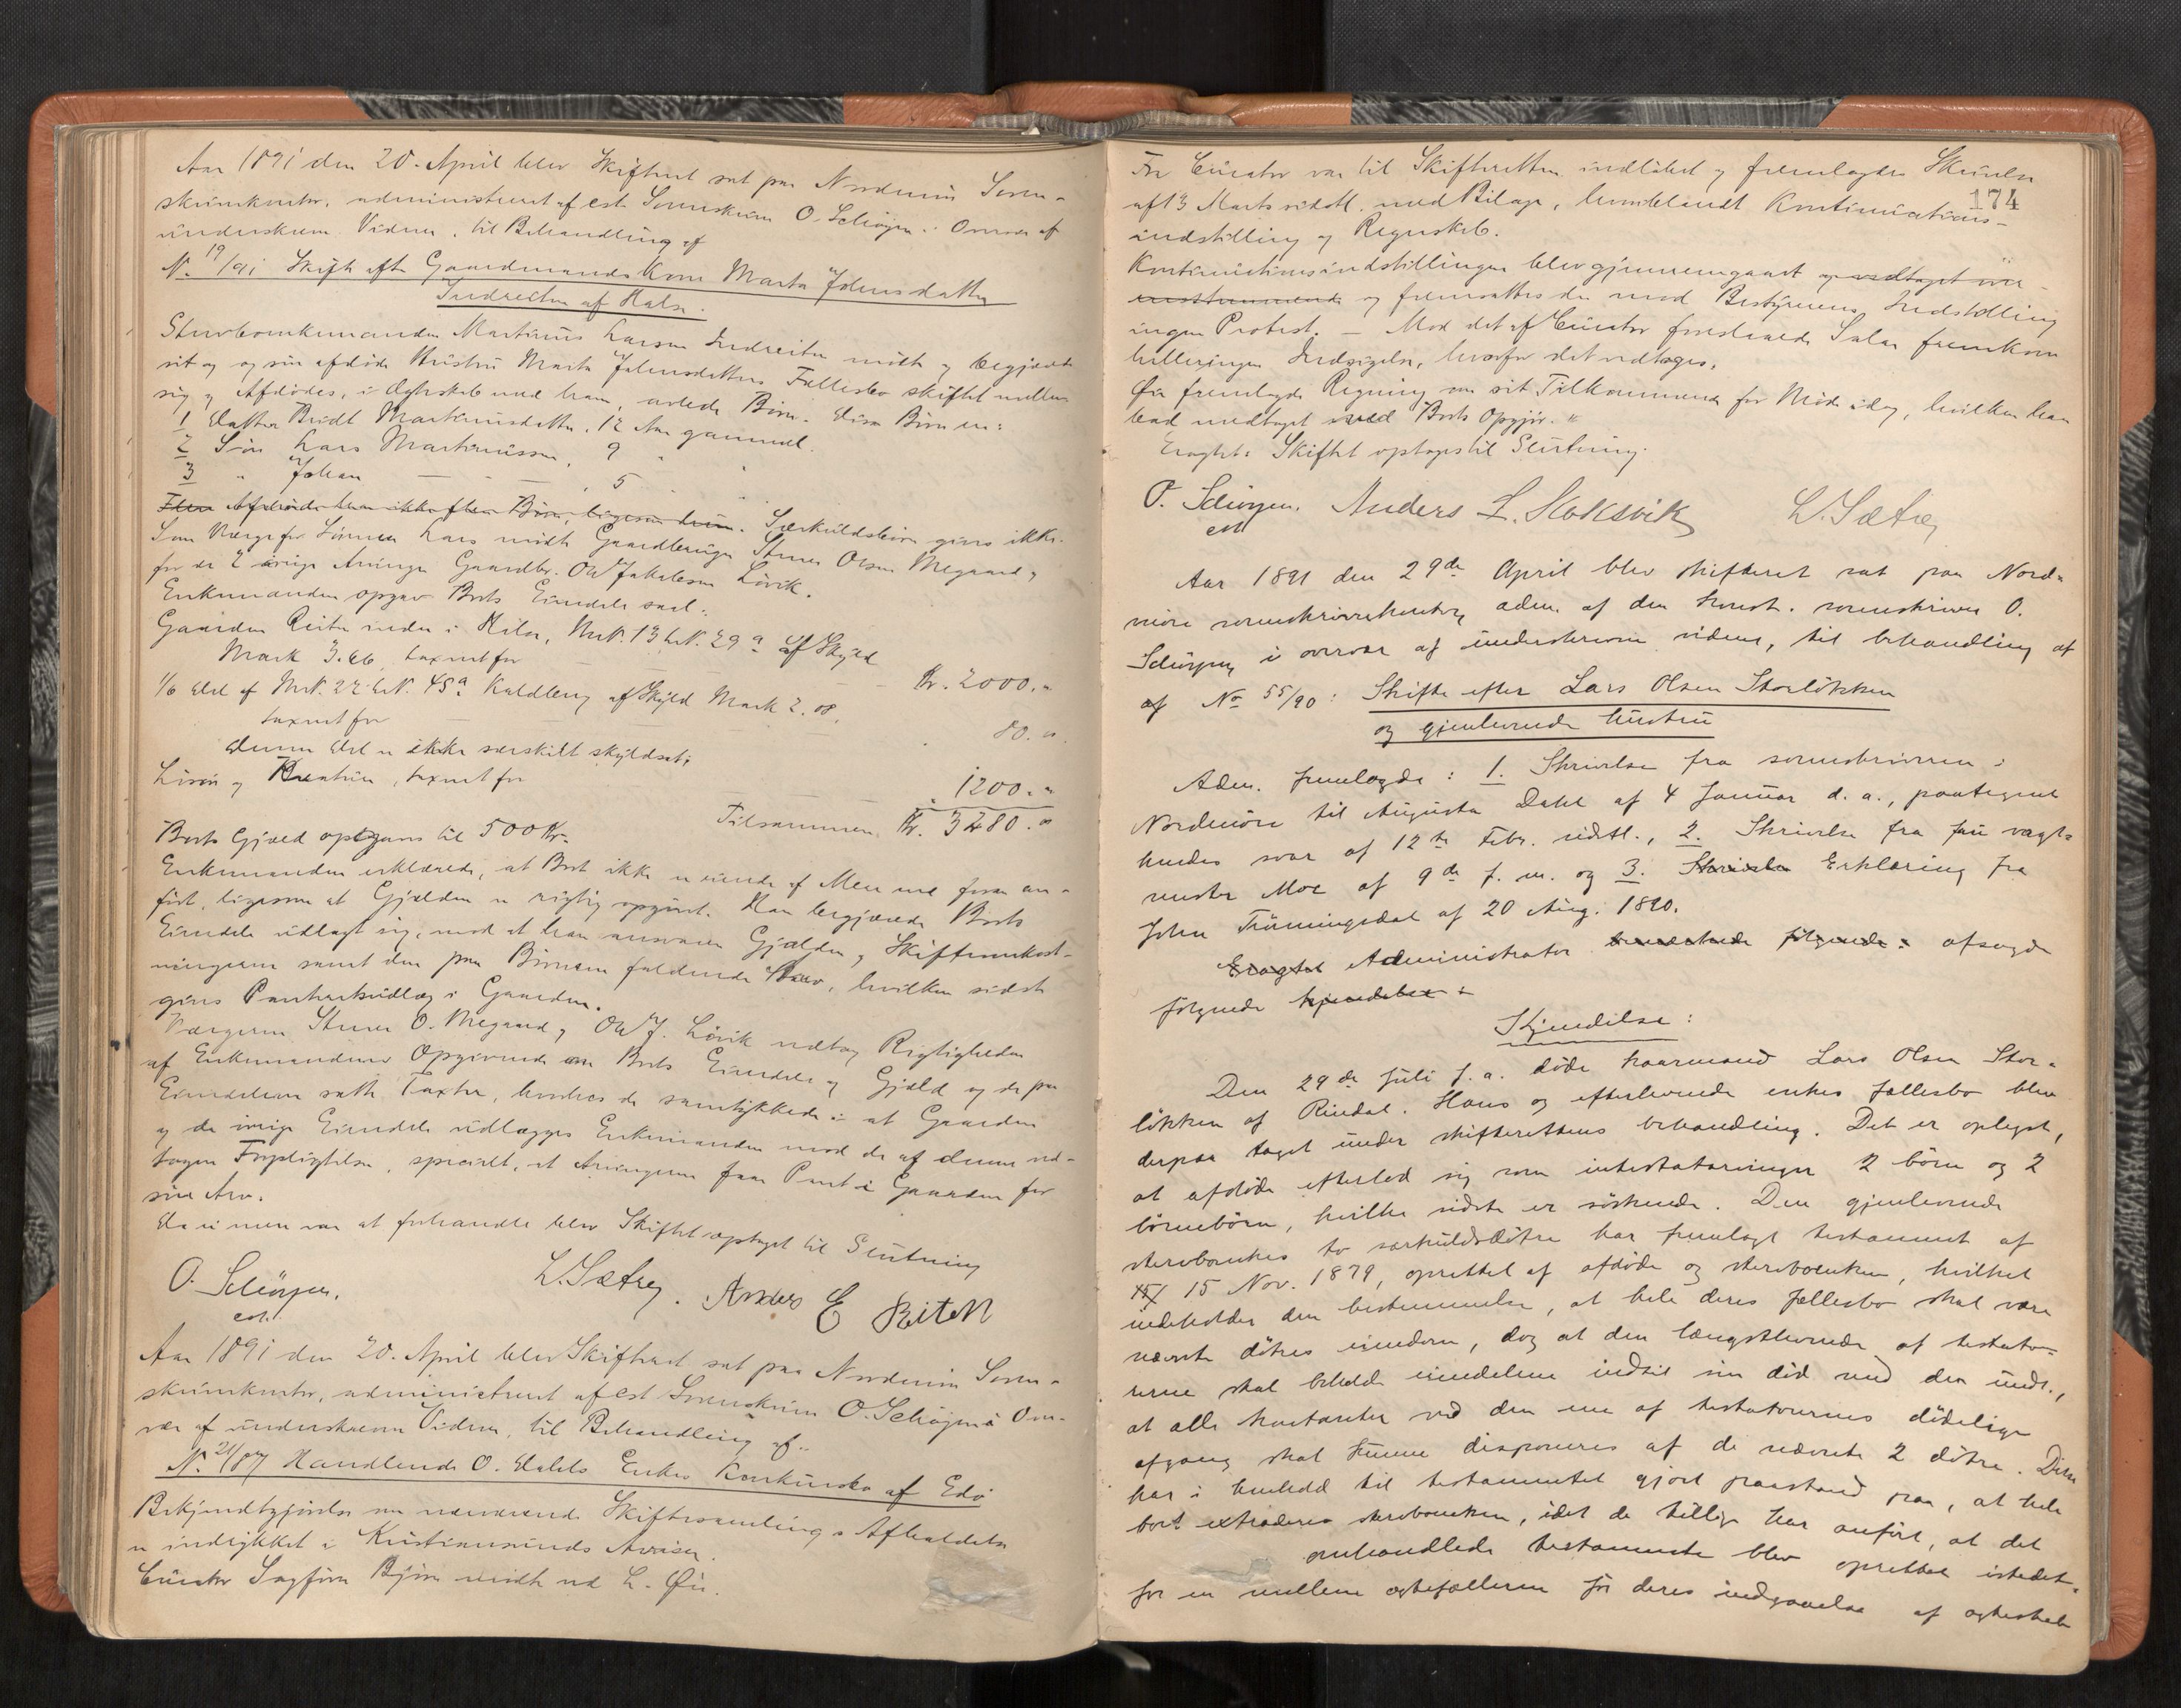 Aar 1891 den 20. April blev Skifteret sat paa Nordmøre Soren-
skriverkontor, administreret af cst. Sorenskriver O. Schiørgen i Overvær af
underskrevne Vidner, til Behandling af
N. 19/91 Skifte efter Gaardmands Kone Marta Johnsdatter
Indreiten af Halse.
Stervboenkemanden Martinus Larsen Indreiten mødte og begjærte
sit og sin afdøde Hustru Marta Johnsdatters Fællesbo skiftet mellem
sig og Afdødes, i Ægteskab med ham, avlede Børn. Disse Børn er:
1 Datter Beret Martinusdatter, 12 Aar gammel.
2 Søn Lars Martinussen, 9 " "
3 " Johan — " — , 5 " "
Flere Afdøde har ikke flere Børn, ligesom hun. Særkuldsbørn gives ikke.
Som Værge for Sønnen Lars mødte Gaardbruger Sturer Olsen Megaard og
for de 2 øvrige Arvinger Gaardbr. Ole Jakobsen Løvik.
Enkemanden opgav Boets Eiendele saal.:
Gaarden Reiten indre i Halse, Mnr. 13 Lnr. 29 a af Skyld
Mark 3.66, taxeret for — — — Kr. 2000. "
1/6 Del af Mnr. 22 Lnr. 45 a Kaldberg af Skyld Mark 2.08,
taxeret for — — — " 80. "
denne Del er ikke særskilt skyldsat;
Løsøre og Kreaturer, taxeret for — — — " 1200. "
Tilsammen Kr. 3480. "
Boets Gjæld opgaves til 500 Kr.
Enkemanden erklærede, at Boet ikke er eiende af Mere end foran an-
ført, ligesom at Gjælden er rigtig opgivet. Han begjærede Boets
Eiendele udlagt sig, mod at han ansvarer Gjælden og Skifteomkost-
ningerne samt den paa Børnene faldende Arv, hvilken sidste
gives Panteretsudlæg i Gaarden.
Værgerne Sturer O. Megaard og Ole J. Løvik vedtog Rigtigheden
af Enkemandens Opgivende om Boets Eiendele og Gjæld og de paa
Eiendelene satte Taxter, hvorhos de samtykkede i at Gaarden
og de øvrige Eiendele udlægges Enkemanden mod de af denne ved-
tagne Forpligtelser, specielt, at Arvingerne faar Pant i Gaarden for
sin Arv.
Da ei mere var at forhandle blev Skiftet optaget til Slutning
O. Schiørgen. L. Sætrey. Anders E Reiten
cst.
Aar 1891 den 20. April blev Skifteret sat paa Nordmøre Soren-
skriverkontor, administreret af cst Sorenskriver O. Schiørgen i Over-
vær af underskrevne Vidner, til Behandling af:
N. 21/87 Handlende O. Dahls Enkes Konkursbo af Edø
Bekjendtgjørelse om nærværende Skiftesamlings Afholdelse
er indrykket i Kristiansunds Aviser.
Curator Sagfører Bjørn mødte ved L. Øie.
174
For Curator var til Skifteretten indløbet og fremlagdes Skrivelse
af 13 Marts sidstl. med Bilage, hvoriblandt Kontinuations-
indstilling og Regnskab.
Kontinuationsindstillingen blev gjennemgaaet og vedtaget over-
ensstemmende og fremsattes der mod Bestyrerens Indstilling
ingen Protest. — Mod det af Curator foreslaaede Salær fremkom
helleringen Indsigelse, hvorfor det vedtages.
Øie fremlagde Regning om sit Tilkommende for Møde idag, hvilken han
bad medtaget ved Boets Opgjør. "
Eragtet: Skiftet optages til Slutning.
O. Schiørgen. Anders L. Hoksvik L. Sætrey
cst
Aar 1891 den 29de April blev skifteret sat paa Nord-
møre sorenskriverkontor, adm. af den konst. sorenskriver O.
Schiørgen, i overvær af underskrevne vidner, til behandling af
af No 55/90: Skifte efter Lars Olsen Storløkken
og gjenlevende hustru
Adm. fremlagde: 1. Skrivelse fra sorenskriveren i
Nordmøre til Augusta Dahl af 4 Januar d. a., paategnet
hendes svar af 12te Febr. sidstl., 2. Skrivelse fra fru vagt-
mester Moe af 9de f. m. og 3. Skrivelse Erklæring fra
John Trønningsdal af 20 Aug. 1890.
Eragtet Administrator bemærkede følgende: afsagde
følgende kjendelse:
Kjendelse:
Den 29de Juli f. a. døde kaarmand Lars Olsen Stor-
løkken af Rindal. Hans og efterlevende enkes fællesbo blev
derpaa taget under skifterettens behandling. Det er oplyst,
at afdøde efterlod sig som intestatarvinger 2 børn og 2
børnebørn, hvilke sidste er søskende. Den gjenlevende
stervboenkes to særkuldsdøtre har fremlagt testament af
15/ 15 Nov. 1879, oprettet af afdøde og stervboenken, hvilket
indeholder den bestemmelse, at hele deres fællesbo skal være
nævnte døtres eiendom, dog at den længstlevende af testato-
rerne skal beholde eiendelene indtil sin død med den undt.,
at alle kontanter ved den ene af testatorernes dødelige
afgang skal kunne disponeres af de nævnte 2 døtre. Disse
har i henhold til testamentet gjort paastand paa, at hele
boet extraderes stervboenken, idet de tillige har anført, at det
omhandlede testamente blev oprettet istedet-
for en mellem ægtefællerne før deres indgaaelse af ægteskab